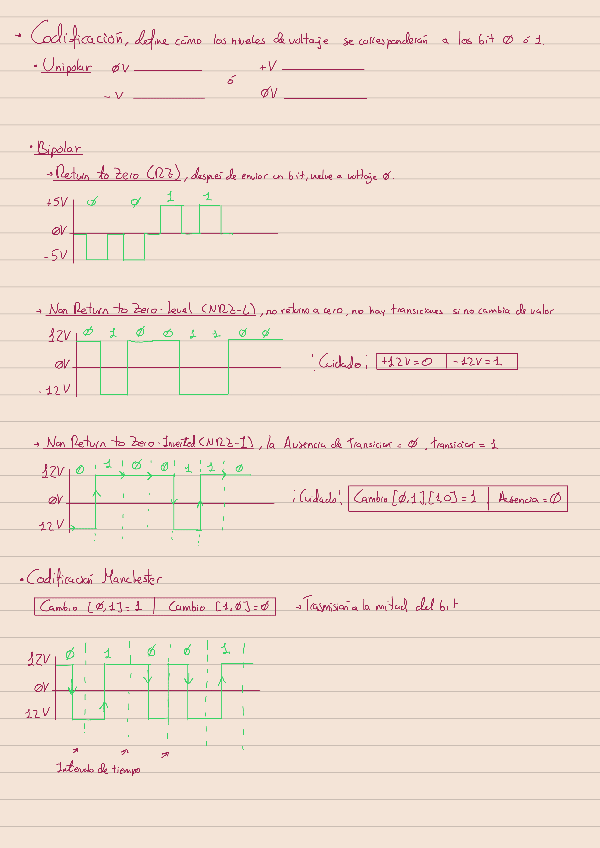 → Codificación, define cómo los niveles de voltaje se corresponderán a los bit Ø ó 1.
· Unipolar ØV +V
ó
-V ØV
· Bipolar
→ Return to Zero (RZ), después de enviar un bit, vuelve a voltaje Ø.
+5V Ø Ø 1 1
ØV
-5V
→ Non Return to Zero-Level (NRZ-L), no retorno a cero, no hay transiciones si no cambia de valor
12V Ø 1 Ø Ø 1 1 Ø Ø
ØV ¡Cuidado! +12V=0 | -12V=1
-12V
→ Non Return to Zero-Inverted (NRZ-I), la Ausencia de Transición = Ø, transición = 1
12V 0 1 Ø Ø 1 1 Ø
ØV ¡Cuidado! Cambio [Ø,1],[1,0]=1 | Ausencia=Ø
12V
· Codificación Manchester
Cambio [Ø,1]=1 | Cambio [1,Ø]=Ø → Trasmisión a la mitad del bit
12V Ø 1 Ø Ø 1
ØV
12V
Intervalo de tiempo